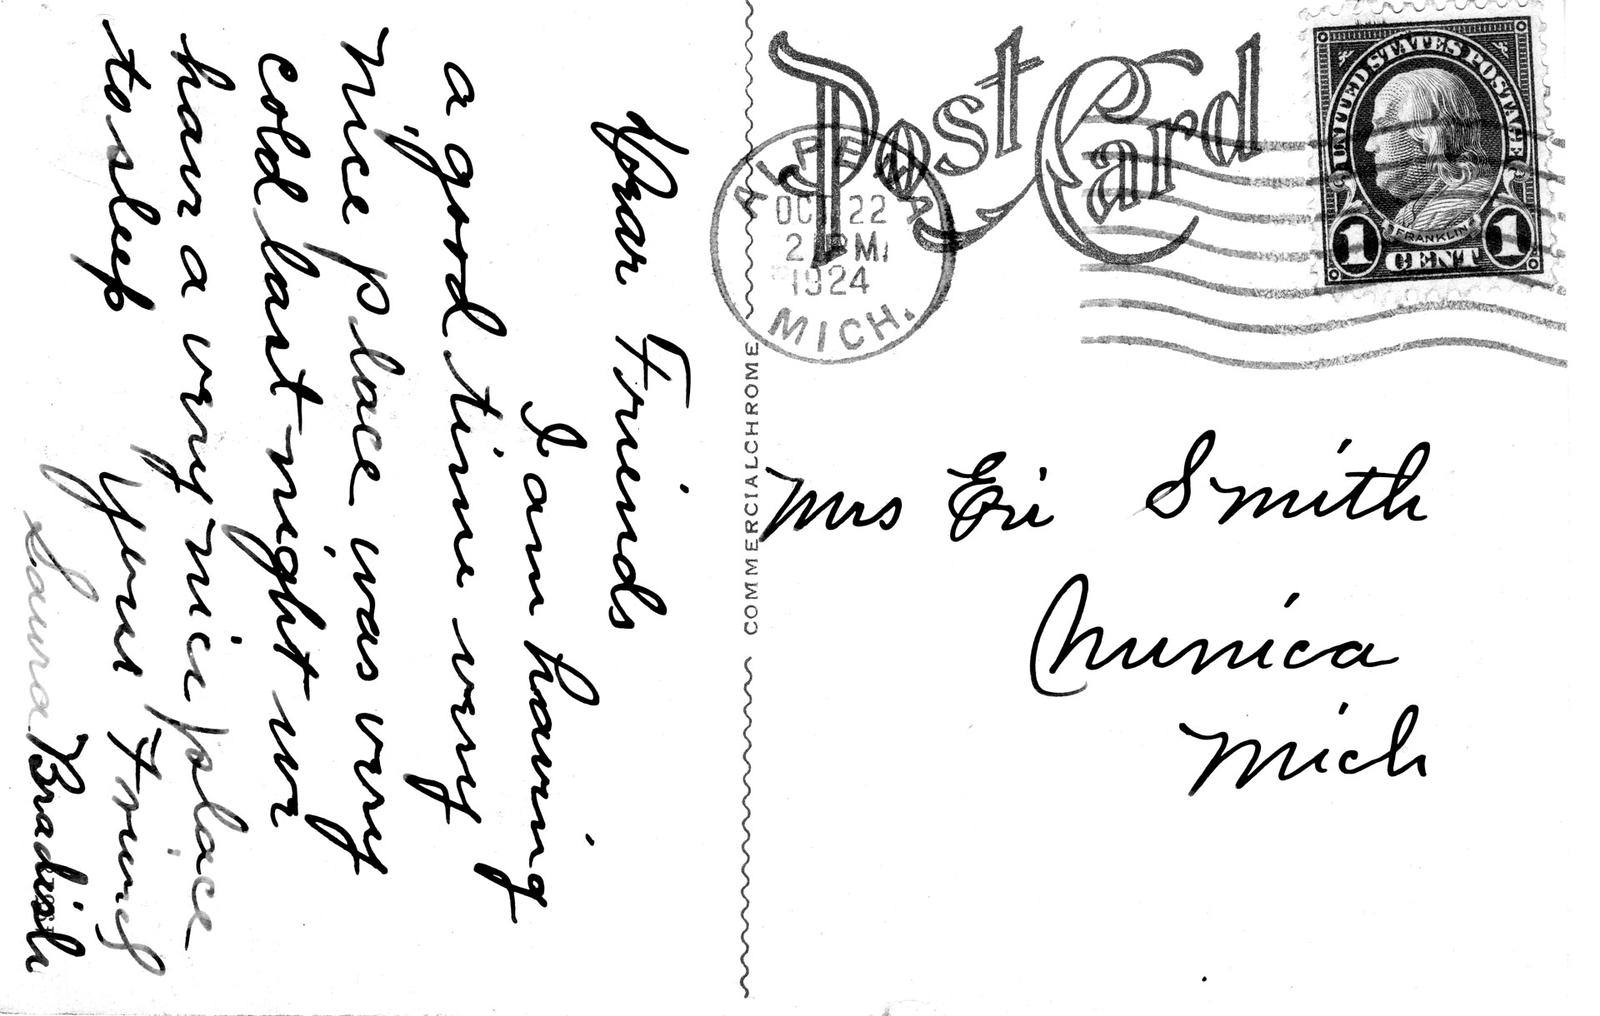 Dear Friends
I am having
a good time very
nice place was very
cold last night we
have a very nice place
to sleep
your Friend
Laura Bradish
COMMERCIALCHROME
Post Card
ALPENA
OCT 22
2 PM
1924
MICH.
UNITED STATES POSTAGE
FRANKLIN
1 CENT 1
Mrs Eri Smith
Nunica
Mich